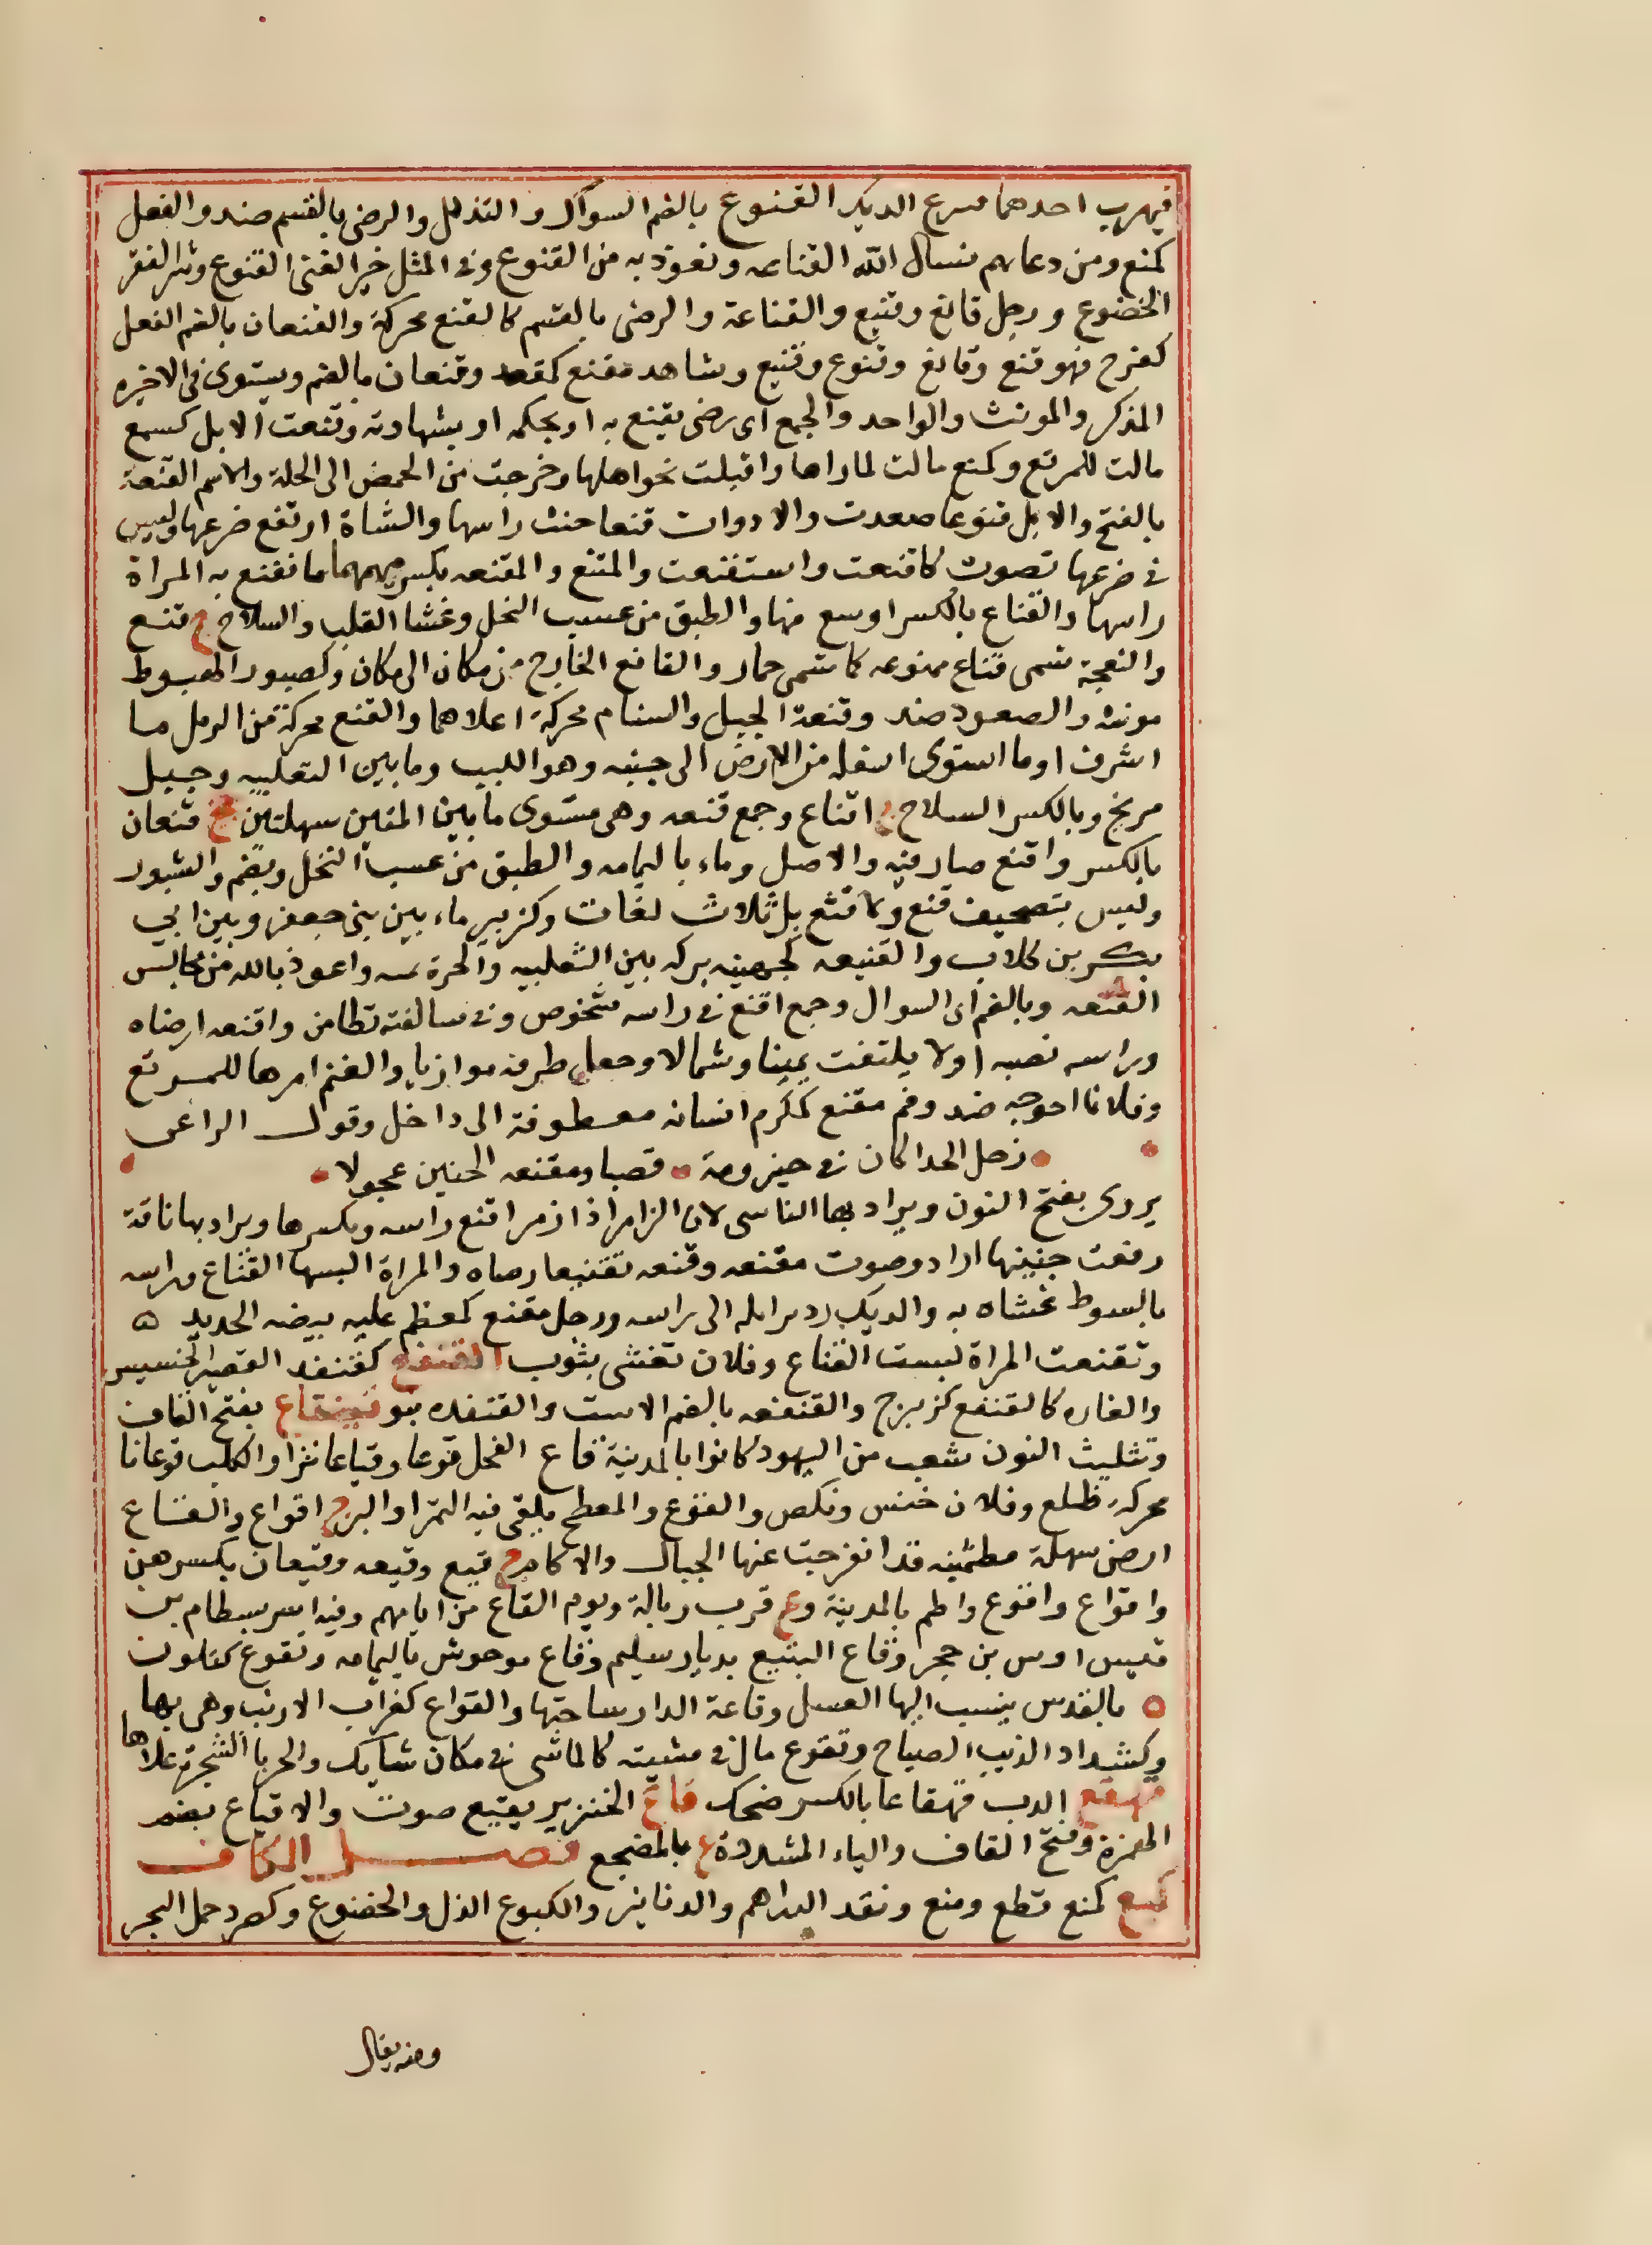 فيهرب احدهما سرع الديك القنوع بالضم السوال والتذلل والرضى بالقسم ضد والفعل
كمنع ومن دعايهم نسال الله القناعه ونعوذ به من القنوع وفى المثل خير الغنى القنوع وشر الفقر
الخضوع ورجل قانع وقنيع والقناعة والرضى بالقسم كالقنع محركة والقنعان بالضم الفعل
كفرح فهو قنع وقانع وقنوع وقنيع وشاهد مقنع كمقعد وقنعان بالضم ويستوى فى الاخيره
المذكر والمونث والواحد والجمع اى رضى يقنع به او بحكمه او بشهادته وقنعت الابل كسمع
مالت للمرتع وكمنع مالت لماواها واقبلت نحو اهلها وخرجت من الحمض الى الحلة والاسم القنعة
بالفتح والابل قنوعا صعدت والادوات قنعا خنث راسها والشاة ارتفع ضرعها وليس
فى ضرعها تصوب كاقنعت واستقنعت والمقنع والمقنعه بكسر ميمهما ما تقنع به المراة
راسها والقناع بالكسر اوسع منها والطبق من عسب النخل وغشا القلب والسلاح ج قنع
والنعجة تسمى قناع ممنوعه كما تسمى خمار والقانع الخارج من مكان الى مكان وكصبور الهبوط
مونثه والصعود ضد وقنعة الجبل والسنام محركة اعلاهما والقنع محركة من الرمل ما
اشرف او ما استوى اسفله من الارض الى جنبه وهو اللبب وما بين الثعلبيه وجبل
مربخ وبالكسر السلاح ج اقناع وجمع قنعه وهى مستوى ما بين المقين سهلتين جج قنعان
بالكسر واقنع صار فيه والاصل وماء باليمامه والطبق من عسب النخل ويضم والشبور
وليس بتصحيف قبع ولا قثع بل ثلاث لغات وكزبير ماء بين بنى جعفر وبين ابي
بكر بن كلاب والقنيعه كجهينه بركه بين الثعلبيه والحرة واعوذ بالله من مجالس
القنعه وبالضم اى السوال وجمع اقنع فى راسه شخوص وفى سالفته تطامن واقنعه ارضاه
وراسه نصبه او لا يلتفت يمينا وشمالا وجعل طرفه موازيا والغنم امرها للمرتع
وفلانا احوجه ضد وفم مقنع كمكرم اسنانه معطوفة الى داخل وقول الراعى
زجل الحدا كان فى حيزومه قصبا ومقنعه الحنين عجولا
يروى بفتح النون ويراد بها الناسى لان الزامر اذا زمر اقنع راسه وبكسرها ويراد بها ناقة
رفعت حنينها اراد وصوت مقنعه وقنعه تقنيعا رضاه والمراة البسها القناع وراسه
بالسوط غشاه به والديك رد برايله الى راسه ورجل مقنع كمعظم عليه بيضه الحديد ه
وتقنعت المراة لبست القناع وفلان تغشى بثوب القنفع كقنفد القصير الخسيس
والفاره كالقنفع كزبرج والقنفعه بالضم الاست والقنفده بنو قينقاع بفتح القاف
وتثليث النون شعب من اليهود كانوا بالمدينة قاع الفحل قوعا وقياعا نزا والكلب قوعانا
محركه ظلع وفلان خنس ونكص والقوع والمسطح يلقى فيه التمر او البر ج اقواع والقاع
ارض سهلة مطمئنه قد انفرجت عنها الجبال والاكام ج قيع وقيعه وقيعان بكسرهن
واقواع واقوع واطم بالمدينة وع قرب زبالة ويوم القاع من ايامهم وفيه اسر بسطام بن
قيس اوس بن حجر وقاع البقيع بديار سليم وقاع موحوش باليمامه وتقوع كتكون
ه بالقدس ينسب اليها العسل وقاعة الدار ساحتها والقواع كغراب الارنب وهى بها
وكشداد الذيب الصياح وتقوع مال فى مشيته كالماشى فى مكان شايك والحربا الشجرة علاها
قهقع الدب قهقاعا بالكسر ضحك قاع الخنزير يقيع صوت والاقياع بضم
الهمزة وفتح القاف والياء المشددة ع بالمضجع فصل الكاف
كبع كمنع قطع ومنع ونقد الدراهم والدنانير والكبوع الذل والخضوع وكصرد جمل البحر
ومنه يقال